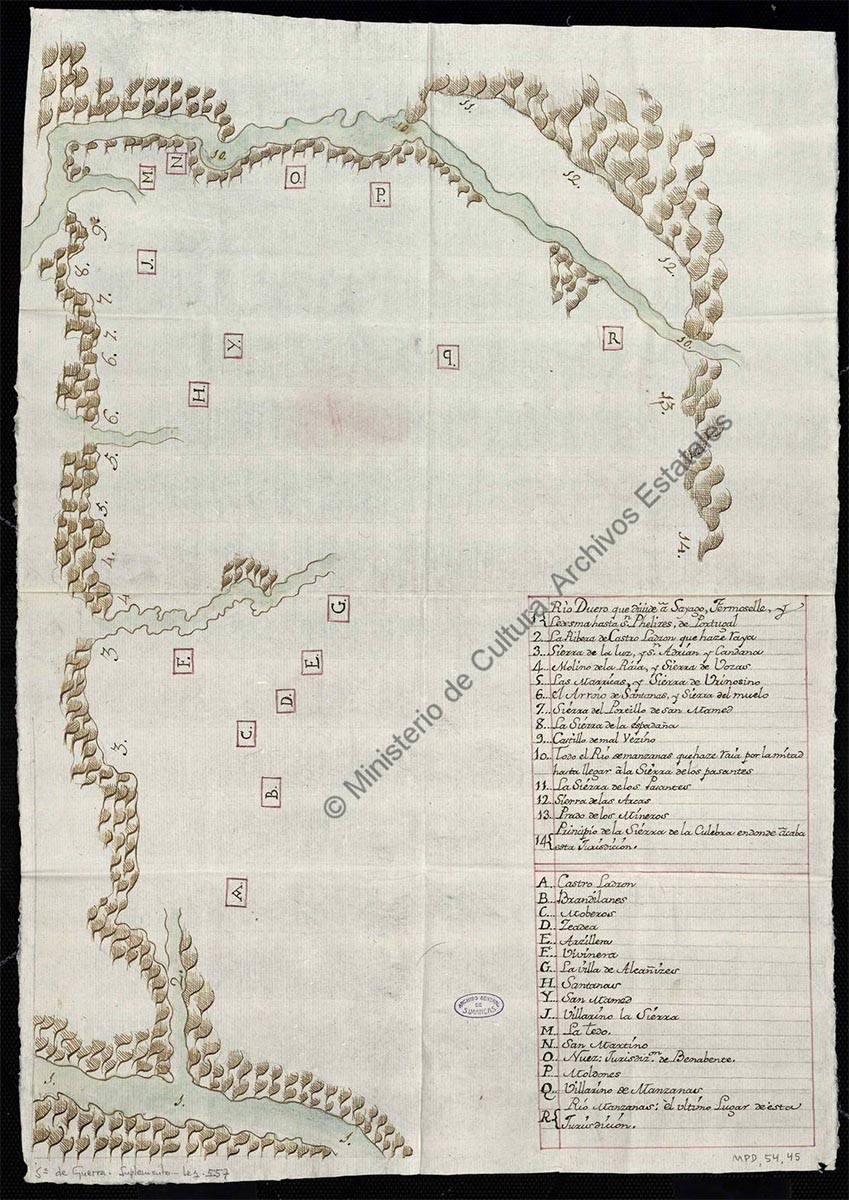 M
N
10.
O.
10.
P.
11.
12.
12.
9.
8.
7.
J.
7.
6.
Y.
q.
R
10.
H.
13.
6.
5.
5.
4.
4
14.
G.
3
F.
E.
D.
C.
3.
B.
A.
2.
1.
1.
1.
Rio Duero que diuide â Sayago, Fermoselle, y
1{ Ledesma hasta Sn. Phelires, de Portugal
2. La Ribera de Castro Ladron que haze raya
3... Sierra de la luz, y Sn. Adrian y Candana
4.. Molino de la Raia, y Sierra de Vozas
5... Las Marricas, y Sierra de Vrinosino
6... el Arroio de Santanas, y Sierra del muelo
7... Sierra del Porcillo de san Mamed
8... La Sierra de la espadaña
9... Castillo de mal Vezino
10.. Todo el Rio semanzanas que haze raia por la mitad
hasta llegar â la Sierra de los pasantes
11. La Sierra de los Pasantes
12. Sierra de las Arcas
13. Prado de los Mineros
Principio de la Sierra de la Culebra en donde âcaba
14{ esta Jurisdicion.
A.. Castro Ladron
B... Brandilanes
C... Moberos
D... Zeadea
E... Arzillera
F... Vivinera
G... La villa de Alcañizes
H... Santanas
Y... San Mamed
J... Villarino la Sierra
M... La Tedo.
N... San Martino
O... Nuez: Jurisdizon. de Benabente.
P... Moldones
Q... Villarino de Manzanas
Rio Manzanas: el vltimo Lugar de esta
R{ Jurisdicion.
ARCHIVO GENERAL
DE
SIMANCAS
© Ministerio de Cultura Archivos Estatales
Sª de Guerra. Suplemento - Leg. 557
MPD, 54, 45